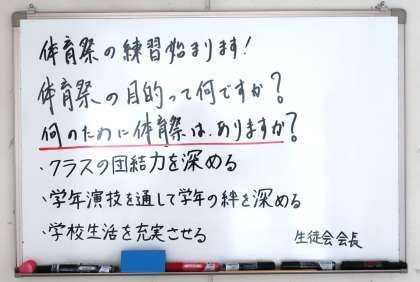 体育祭の練習始まります!
体育祭の目的って何ですか?
何のために体育祭は、ありますか?
・クラスの団結力を深める
・学年演技を通して学年の絆を深める
・学校生活を充実させる
生徒会会長